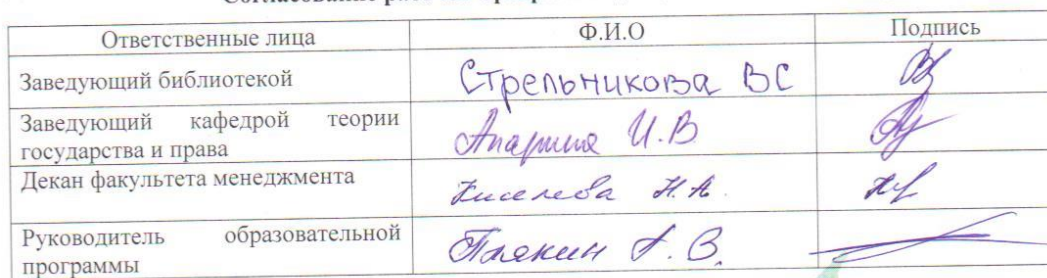 Ответственные лица Ф.И.О Подпись
Заведующий библиотекой Стрельникова ВС
Заведующий кафедрой теории
государства и права Апарина И.В
Декан факультета менеджмента Киселева Н.Н.
Руководитель образовательной
программы А.В.